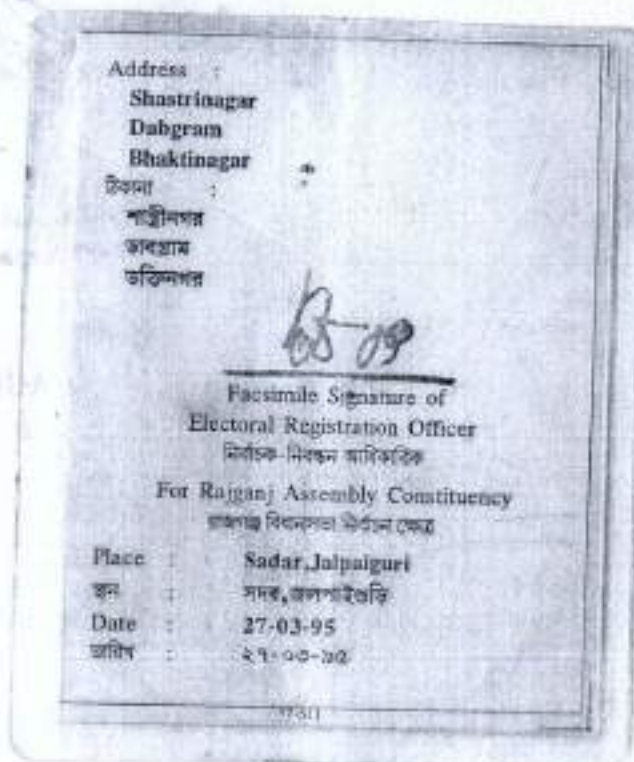 Address :
Shastrinagar
Dabgram
Bhaktinagar
ঠিকানা :
শাস্ত্রীনগর
ডাবগ্রাম
ভক্তিনগর
Facsimile Signature of
Electoral Registration Officer
নির্বাচক-নিবন্ধন আধিকারিক
For Rajganj Assembly Constituency
রাজগঞ্জ বিধানসভা নির্বাচন ক্ষেত্র
Place : Sadar,Jalpaiguri
স্থান : সদর,জলপাইগুড়ি
Date : 27-03-95
তারিখ : ২৭-০৩-৯৫